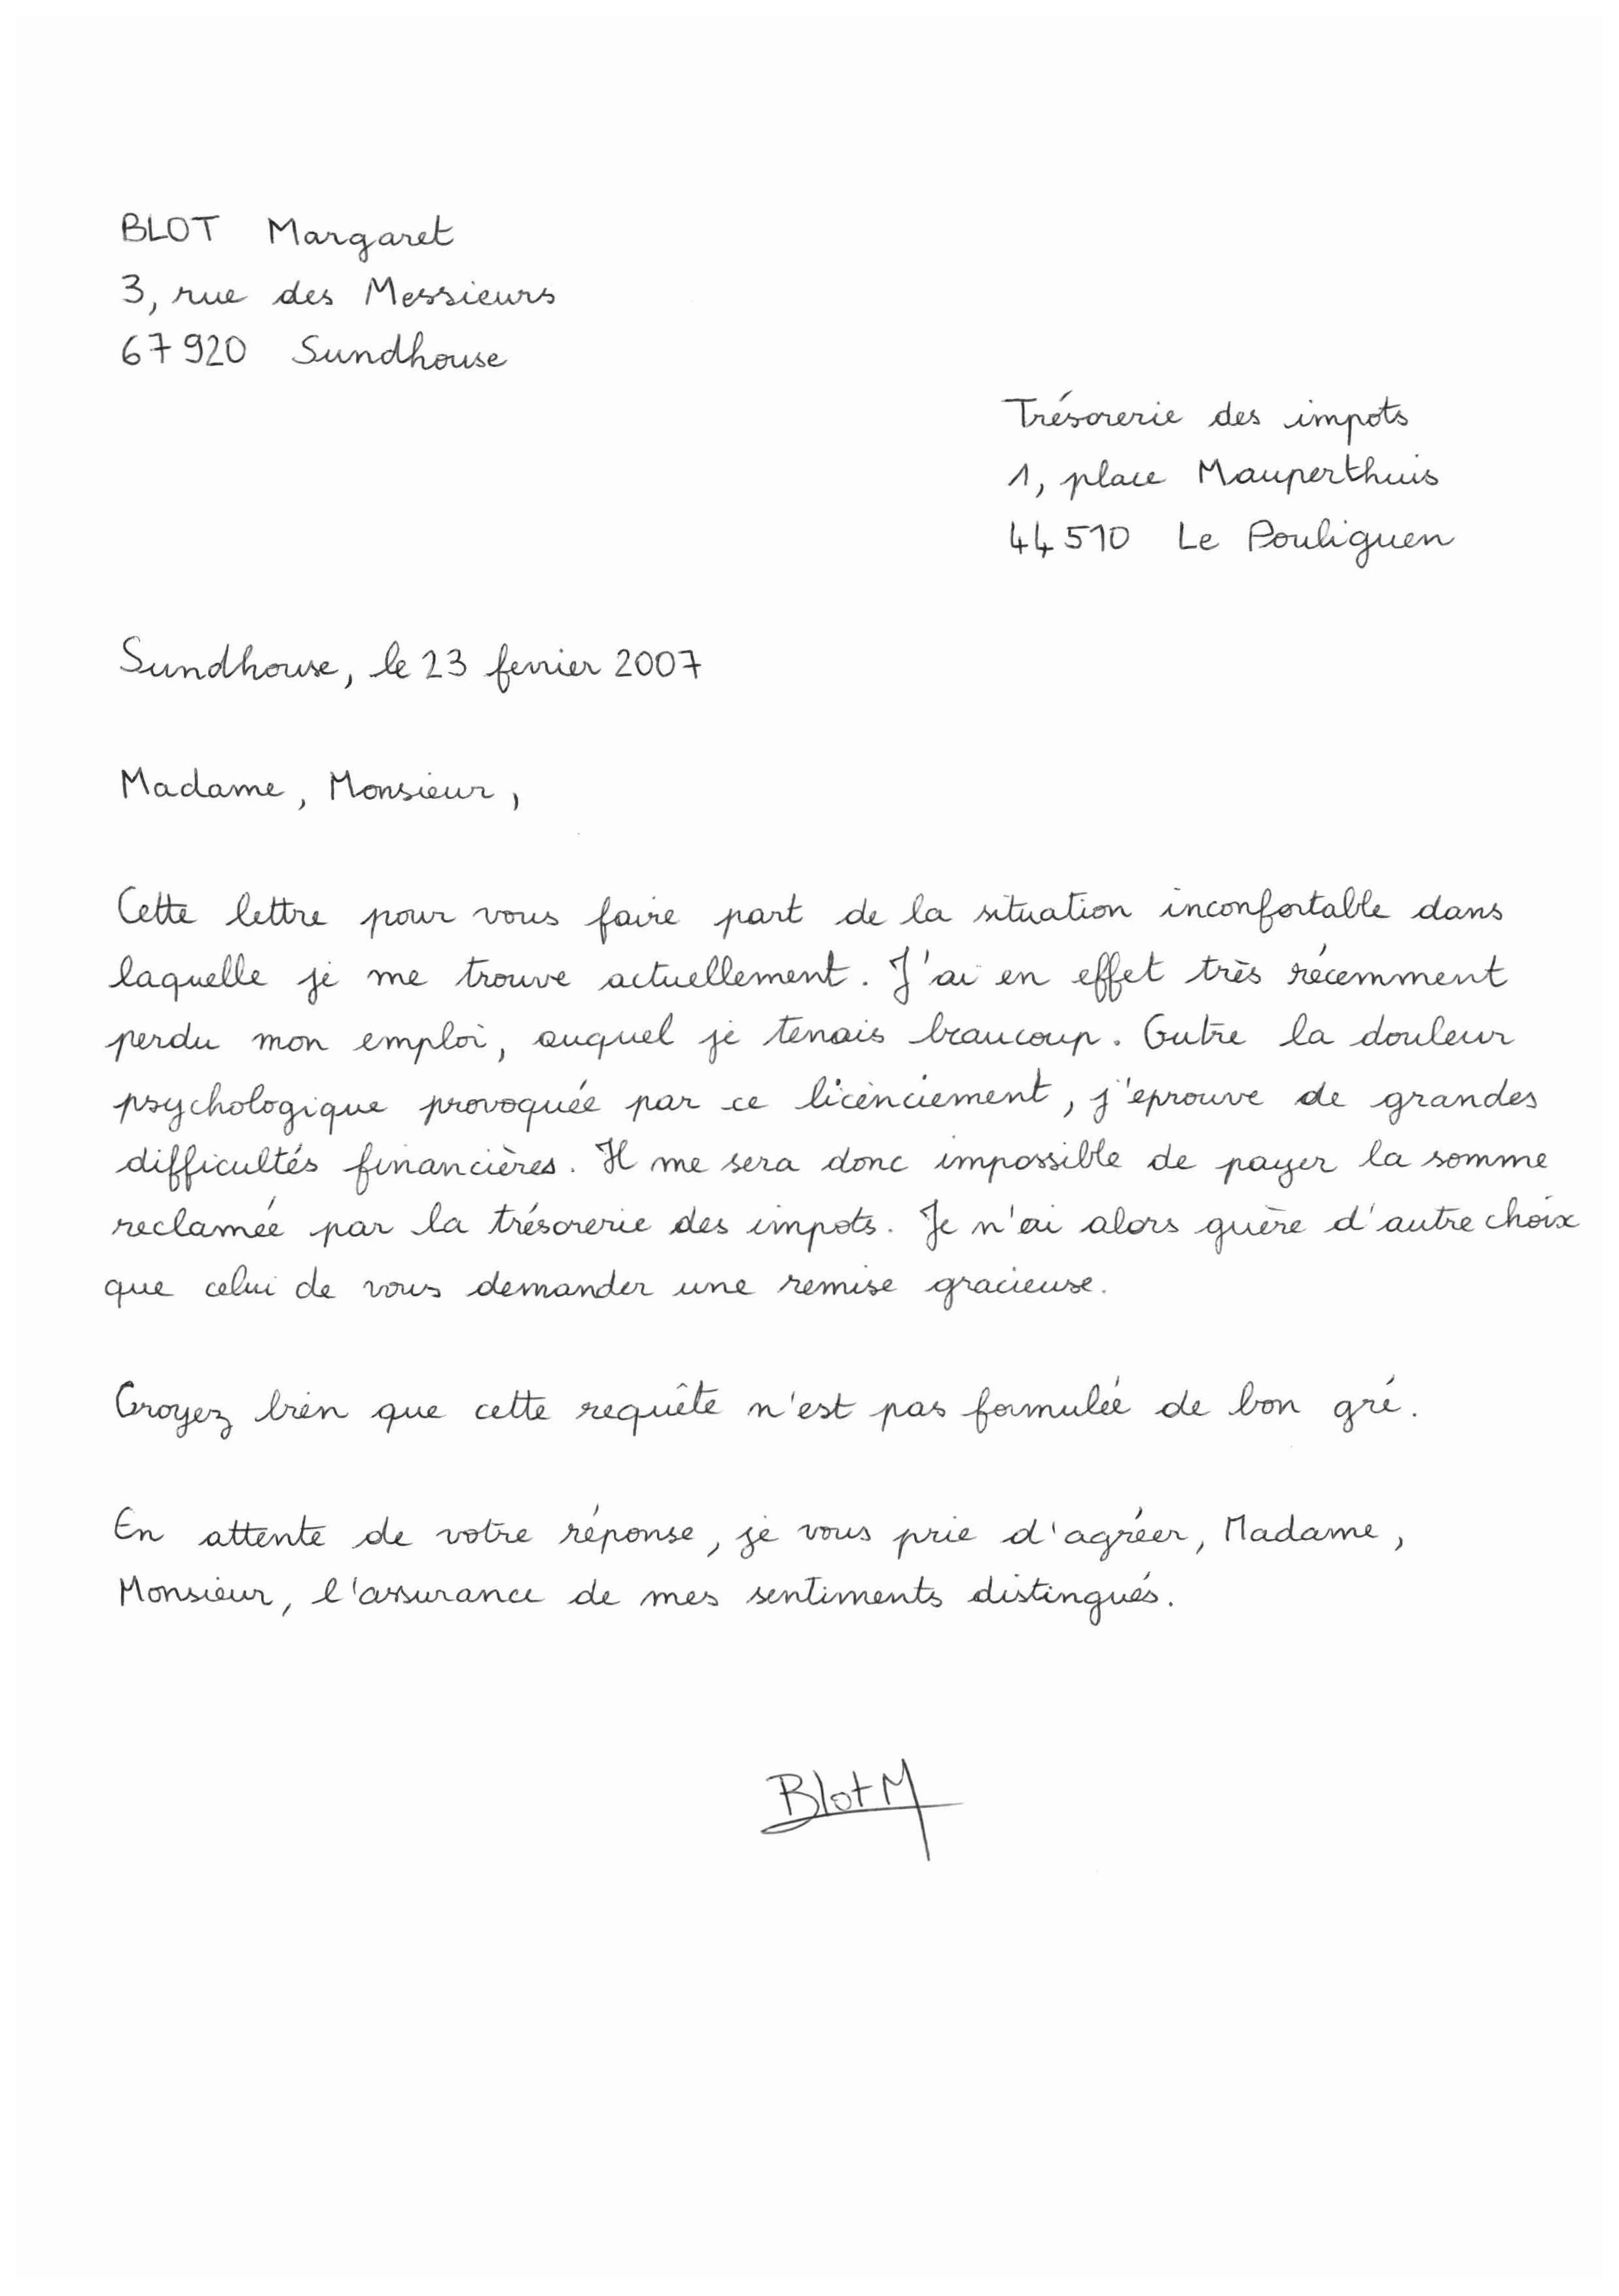 BLOT Margaret
3, rue des Messieurs
67920 Sundhouse
Trésorerie des impots
1, place Mauperthuis
44510 Le Pouliguen
Sundhouse, le 23 fevrier 2007
Madame, Monsieur,
Cette lettre pour vous faire part de la situation inconfortable dans
laquelle je me trouve actuellement. J'ai en effet très récemment
perdu mon emploi, auquel je tenais beaucoup. Outre la douleur
psychologique provoquée par ce licenciement, j'éprouve de grandes
difficultés financières. Il me sera donc impossible de payer la somme
reclamée par la trésorerie des impots. Je n'ai alors guère d'autre choix
que celui de vous demander une remise gracieuse.
Croyez bien que cette requête n'est pas formulée de bon gré.
En attente de votre réponse, je vous prie d'agréer, Madame,
Monsieur, l'assurance de mes sentiments distingués.
Blot M